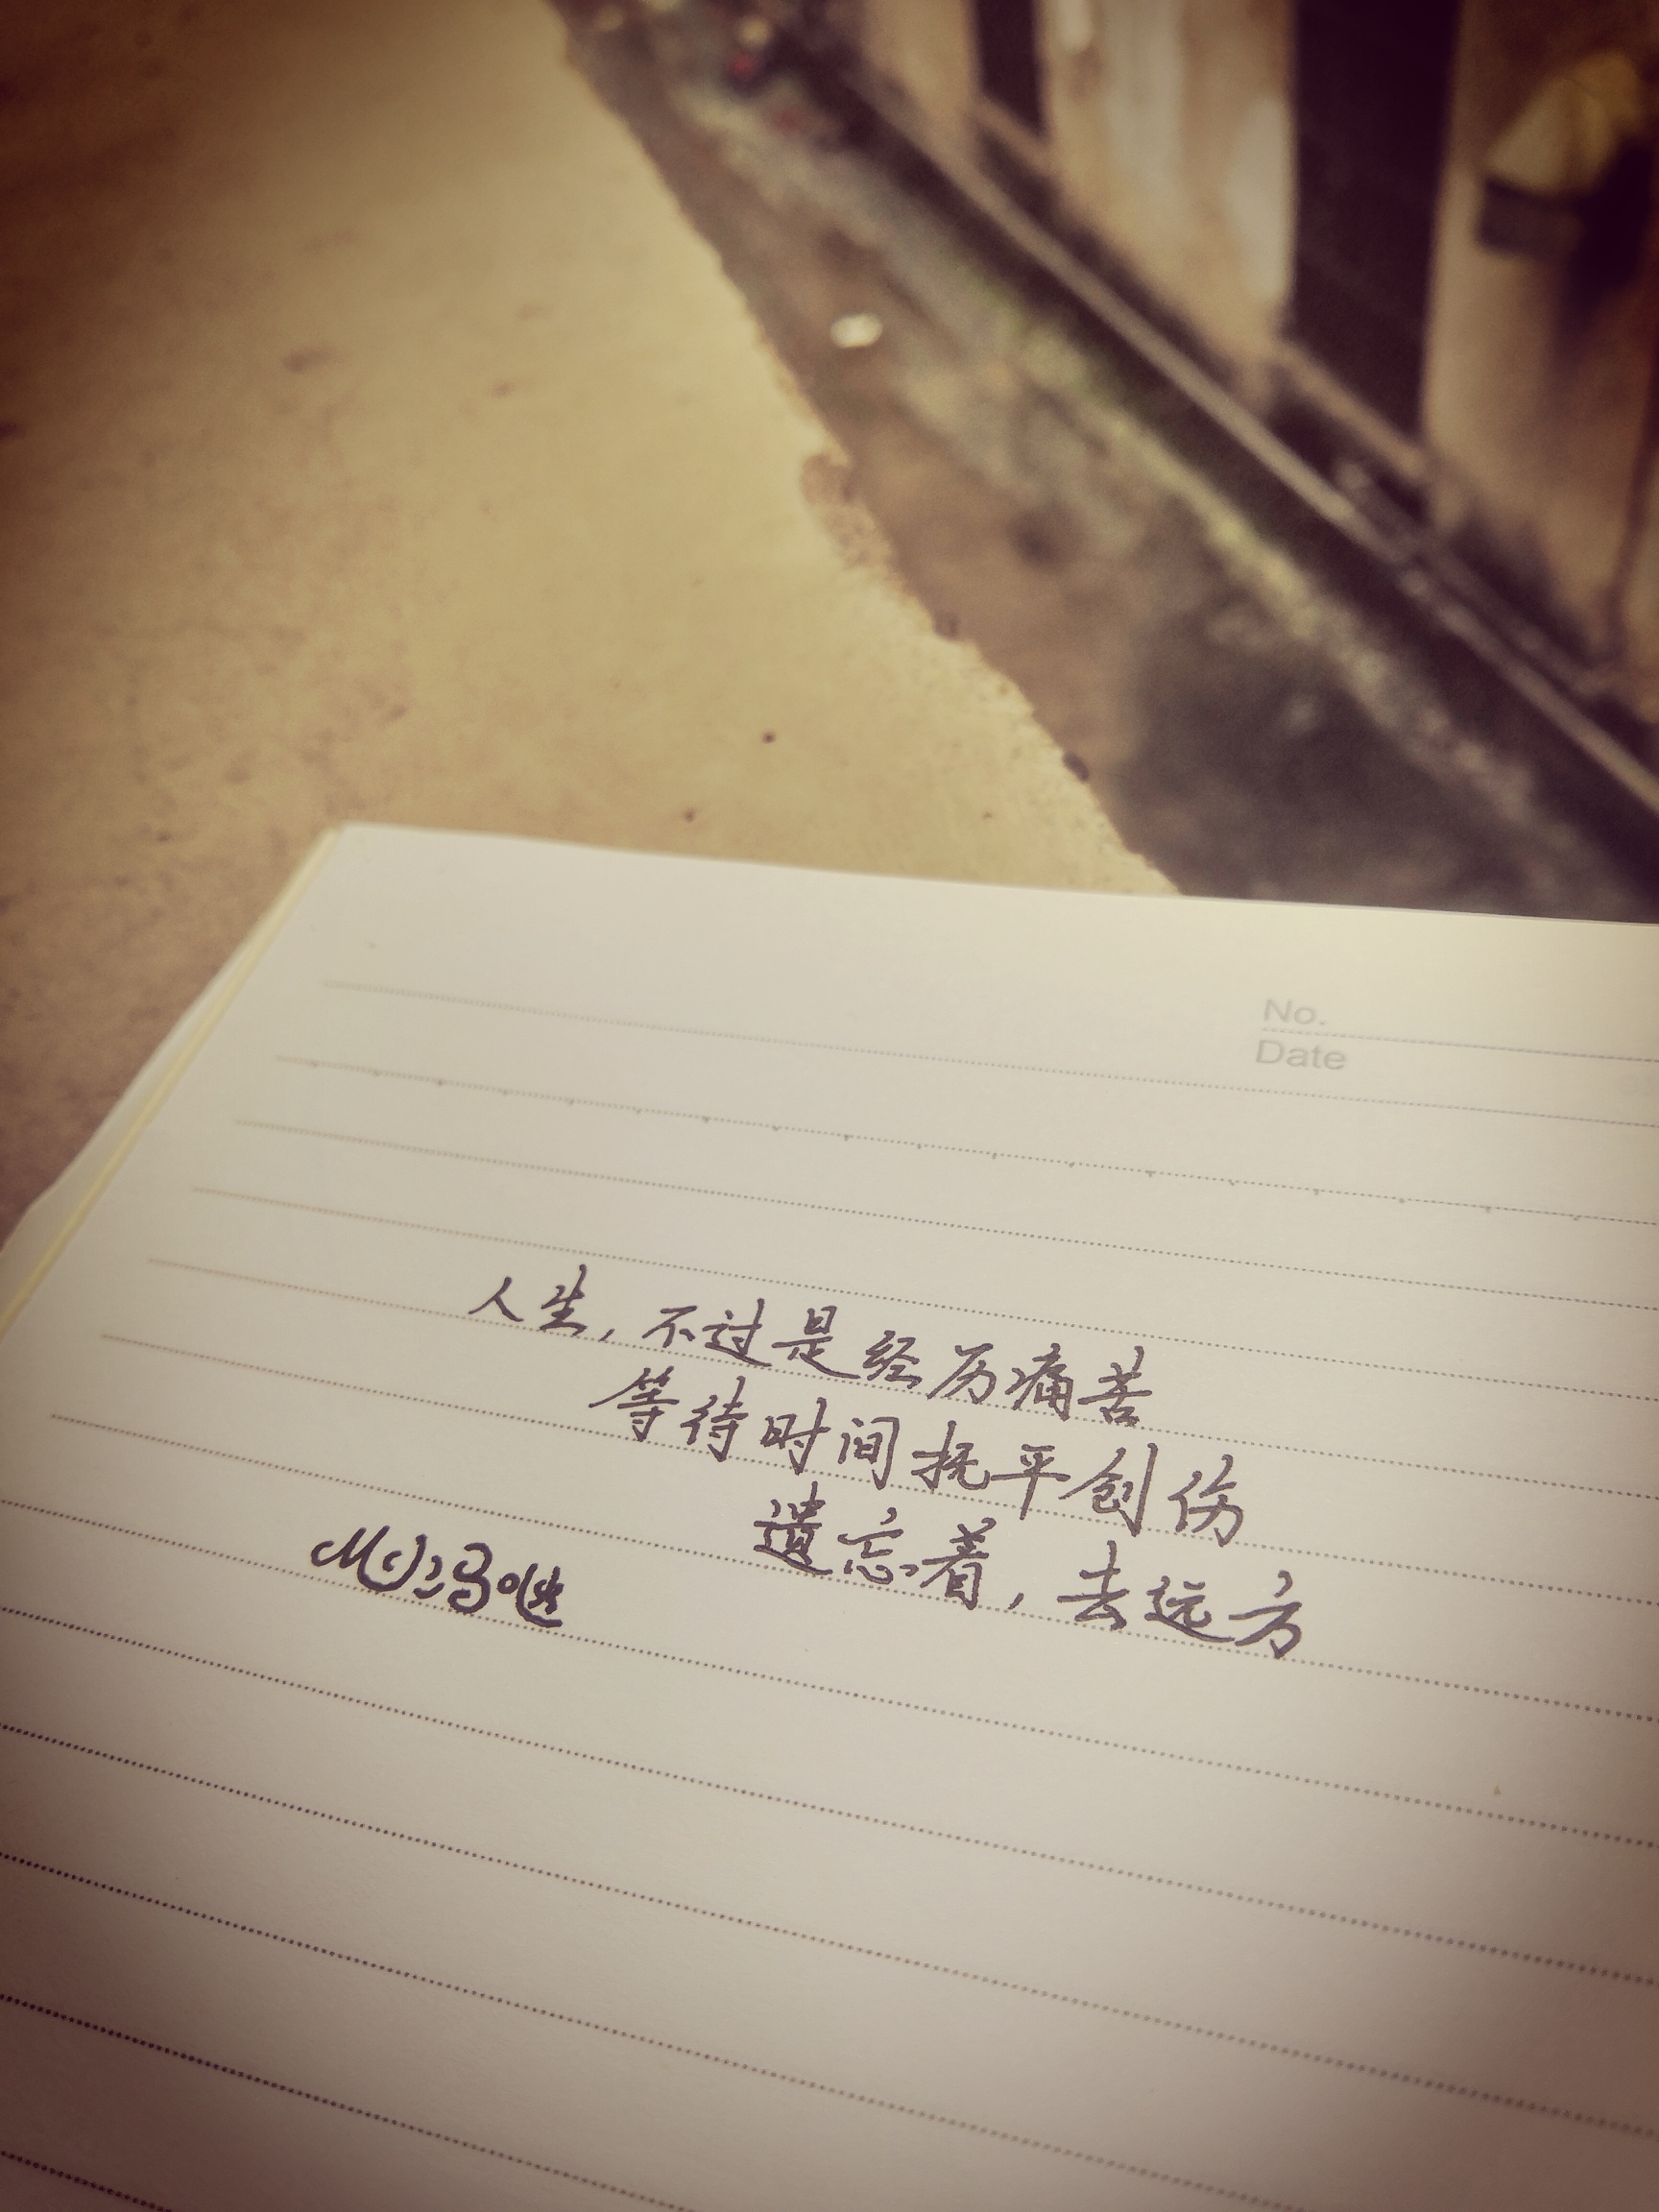 No.
Date
人生，不过是经历痛苦
等待时间抚平创伤
遗忘着，去远方